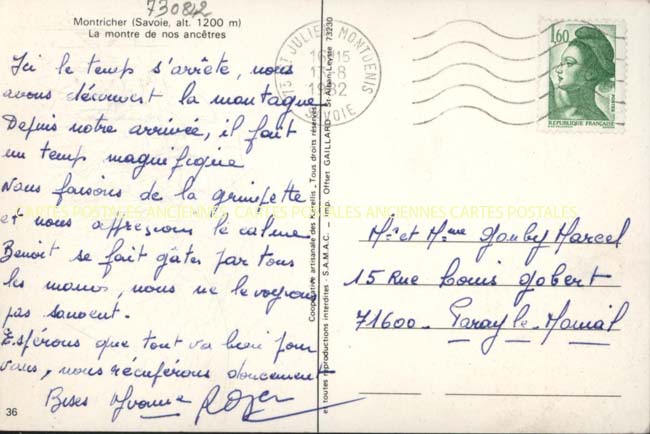 730842
Montricher (Savoie, alt. 1200 m)
La montre de nos ancêtres
Ici le temps s'arrête, nous
avons découvert la montagne
Depuis notre arrivée, il fait
un temps magnifique
Nous faisons de la grimpette
et nous apprécions le calme
Benoît se fait gâter par tous
les mamis, nous ne le voyons
pas souvent.
Espérons que tout va bien pour
vous, nous récupérons doucement
Bises Yvonne Roger
36
Coopérative artisanale des Karellis - Tous droits réservés
et toutes reproductions interdites - S.A.M.A.C. - Imp. Offset GAILLARD - St-Alban-Leysse 73230
73 ST JULIEN MONTDENIS
16H15
17-8
1982
SAVOIE
1,60
REPUBLIQUE FRANÇAISE
Mr et Mme Gouby Marcel
15 Rue Louis Gobert
71600 - Paray-le-Monial
CARTES POSTALES ANCIENNES CARTES POSTALES ANCIENNES CARTES POSTALES